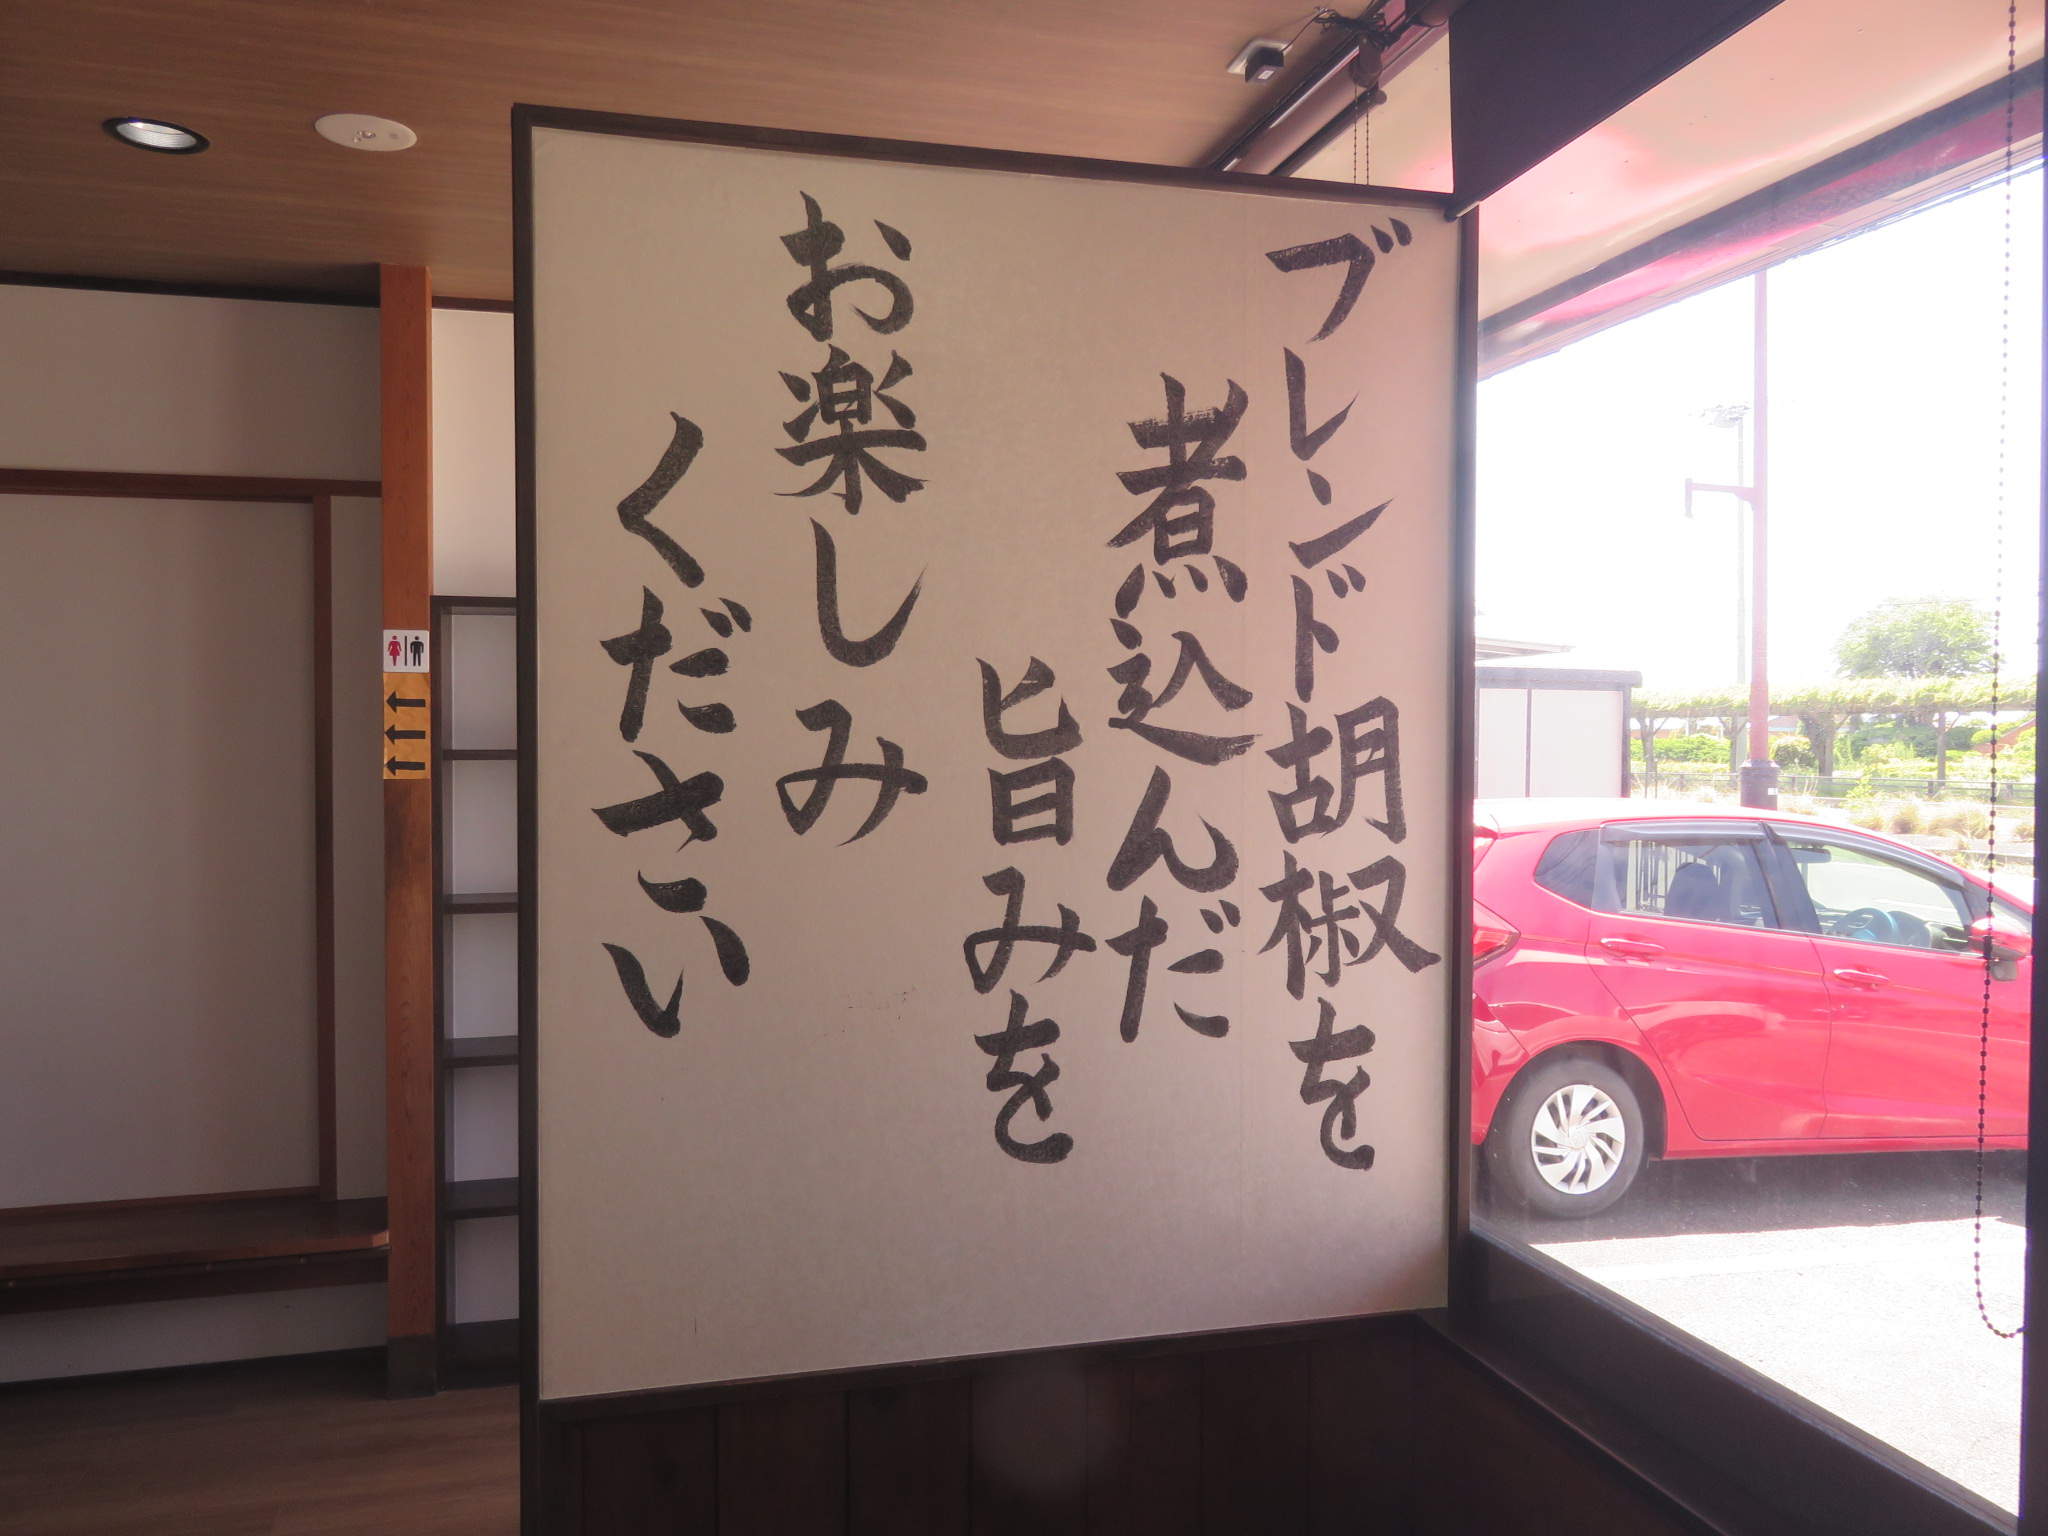 ブレンド胡椒を
煮込んだ
旨みを
お楽しみ
ください